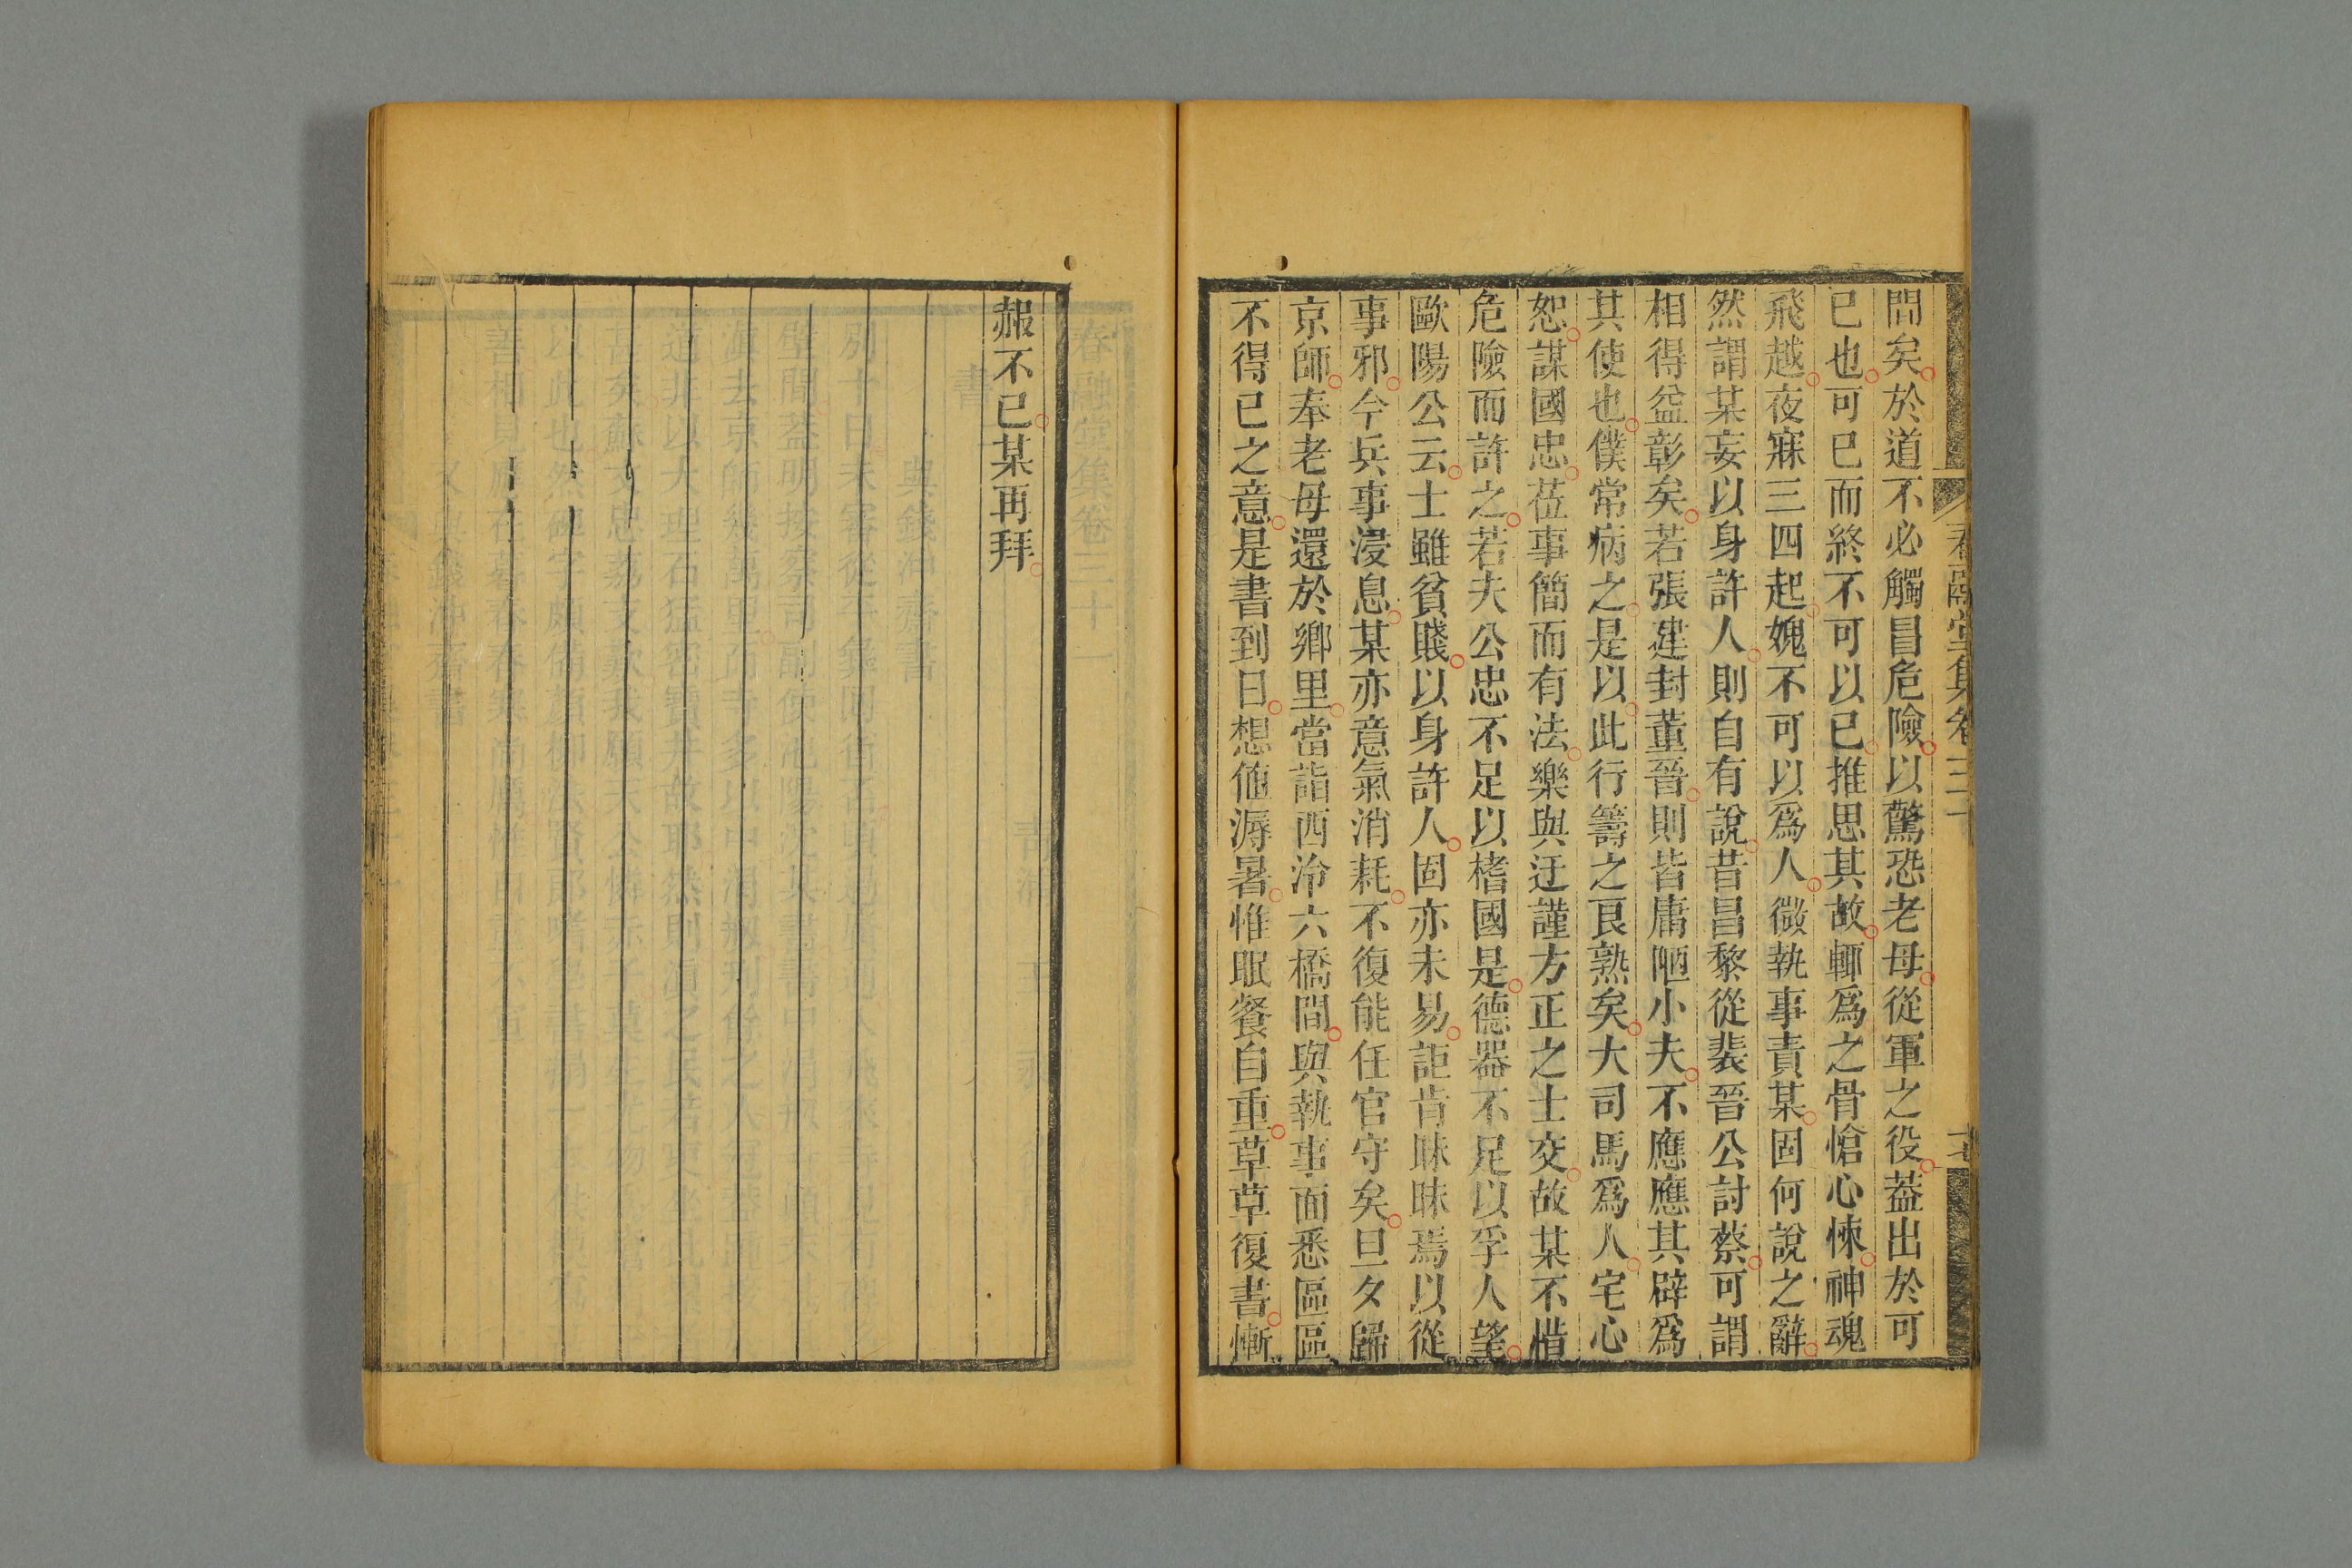 問矣於道不必觸冒危險以驚恐老母從軍之役葢出於可
已也可已而終不可以已推思其故輒爲之骨愴心悚神魂
飛越夜寐三四起媿不可以爲人微執事責某固何說之辭
然謂某妄以身許人則自有說昔昌黎從裴晉公討蔡可謂
相得益彰矣若張建封董晉則皆庸陋小夫不應應其辟爲
其使也僕常病之是以此行籌之良熟矣大司馬爲人宅心
恕謀國忠莅事簡而有法樂與迂謹方正之士交故某不惜
危險而許之若夫公忠不足以楮國是德器不足以孚人望
歐陽公云士雖貧賤以身許人固亦未易詎肯昧昧焉以從
事邪今兵事浸息某亦意氣消耗不復能任官守矣旦夕歸
京師奉老母還於鄉里當詣西泠六橋間與執事面悉區區
不得已之意是書到日想値溽暑惟眠餐自重草草復書慚
赧不已某再拜
春融堂集卷三十